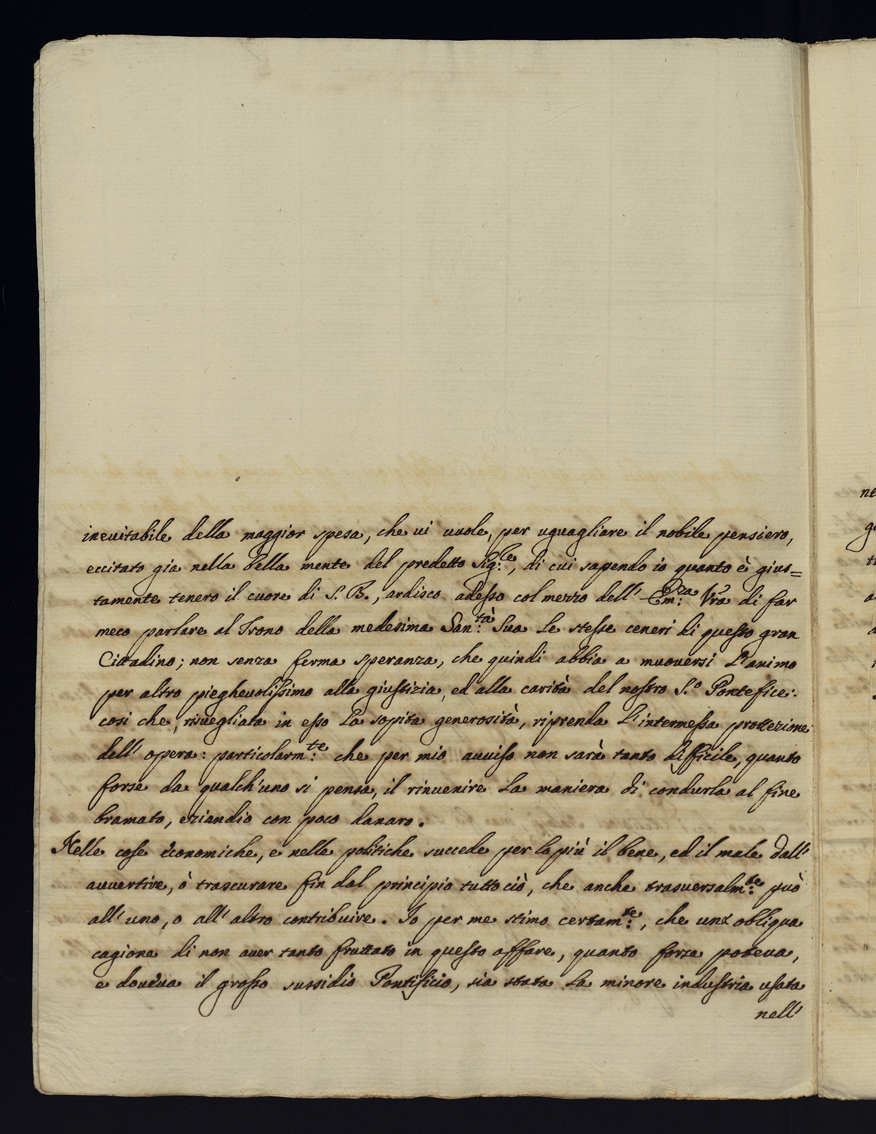 inevitabile della maggior spesa, che vi vuole, per uguagliare il nobile pensiero,
eccitato già nella bella mente del predetto Sig:le, di cui sapendo io quanto è gius=
tamente tenero il cuore di S. B., ardisco adesso col mezzo dell' Em:za Vra di far
meco parlare al Trono della medesima San:tà Sua le stesse ceneri di questo gran
Cittadino; non senza ferma speranza, che quindi abbia a muoversi l'animo
per altro pieghevolissimo alla giustizia, ed alla carità del nostro S.o Pontefice:
così che, risvegliata in esso la sopita generosità, riprenda l'intermessa protezione
dell' opera: particolarm:te che per mio avviso non sarà tanto difficile, quanto
forse da qualch'uno si pensa, il rinvenire la maniera di condurla al fine
bramato, eziandio con poco danaro.
Nelle cose economiche, e nelle politiche succede per lo più il bene, ed il male dall'
avvertire, ò trascurare fin dal principio tutto ciò, che anche trasversalm:te può
all' uno, o all' altro contribuire. Io per me stimo certam:te, che una obliqua
cagione di non aver tanto fruttato in questo affare, quanto forze poteva,
e doveva il grosso sussidio Pontificio, sia stata la minore industria usata
nell'